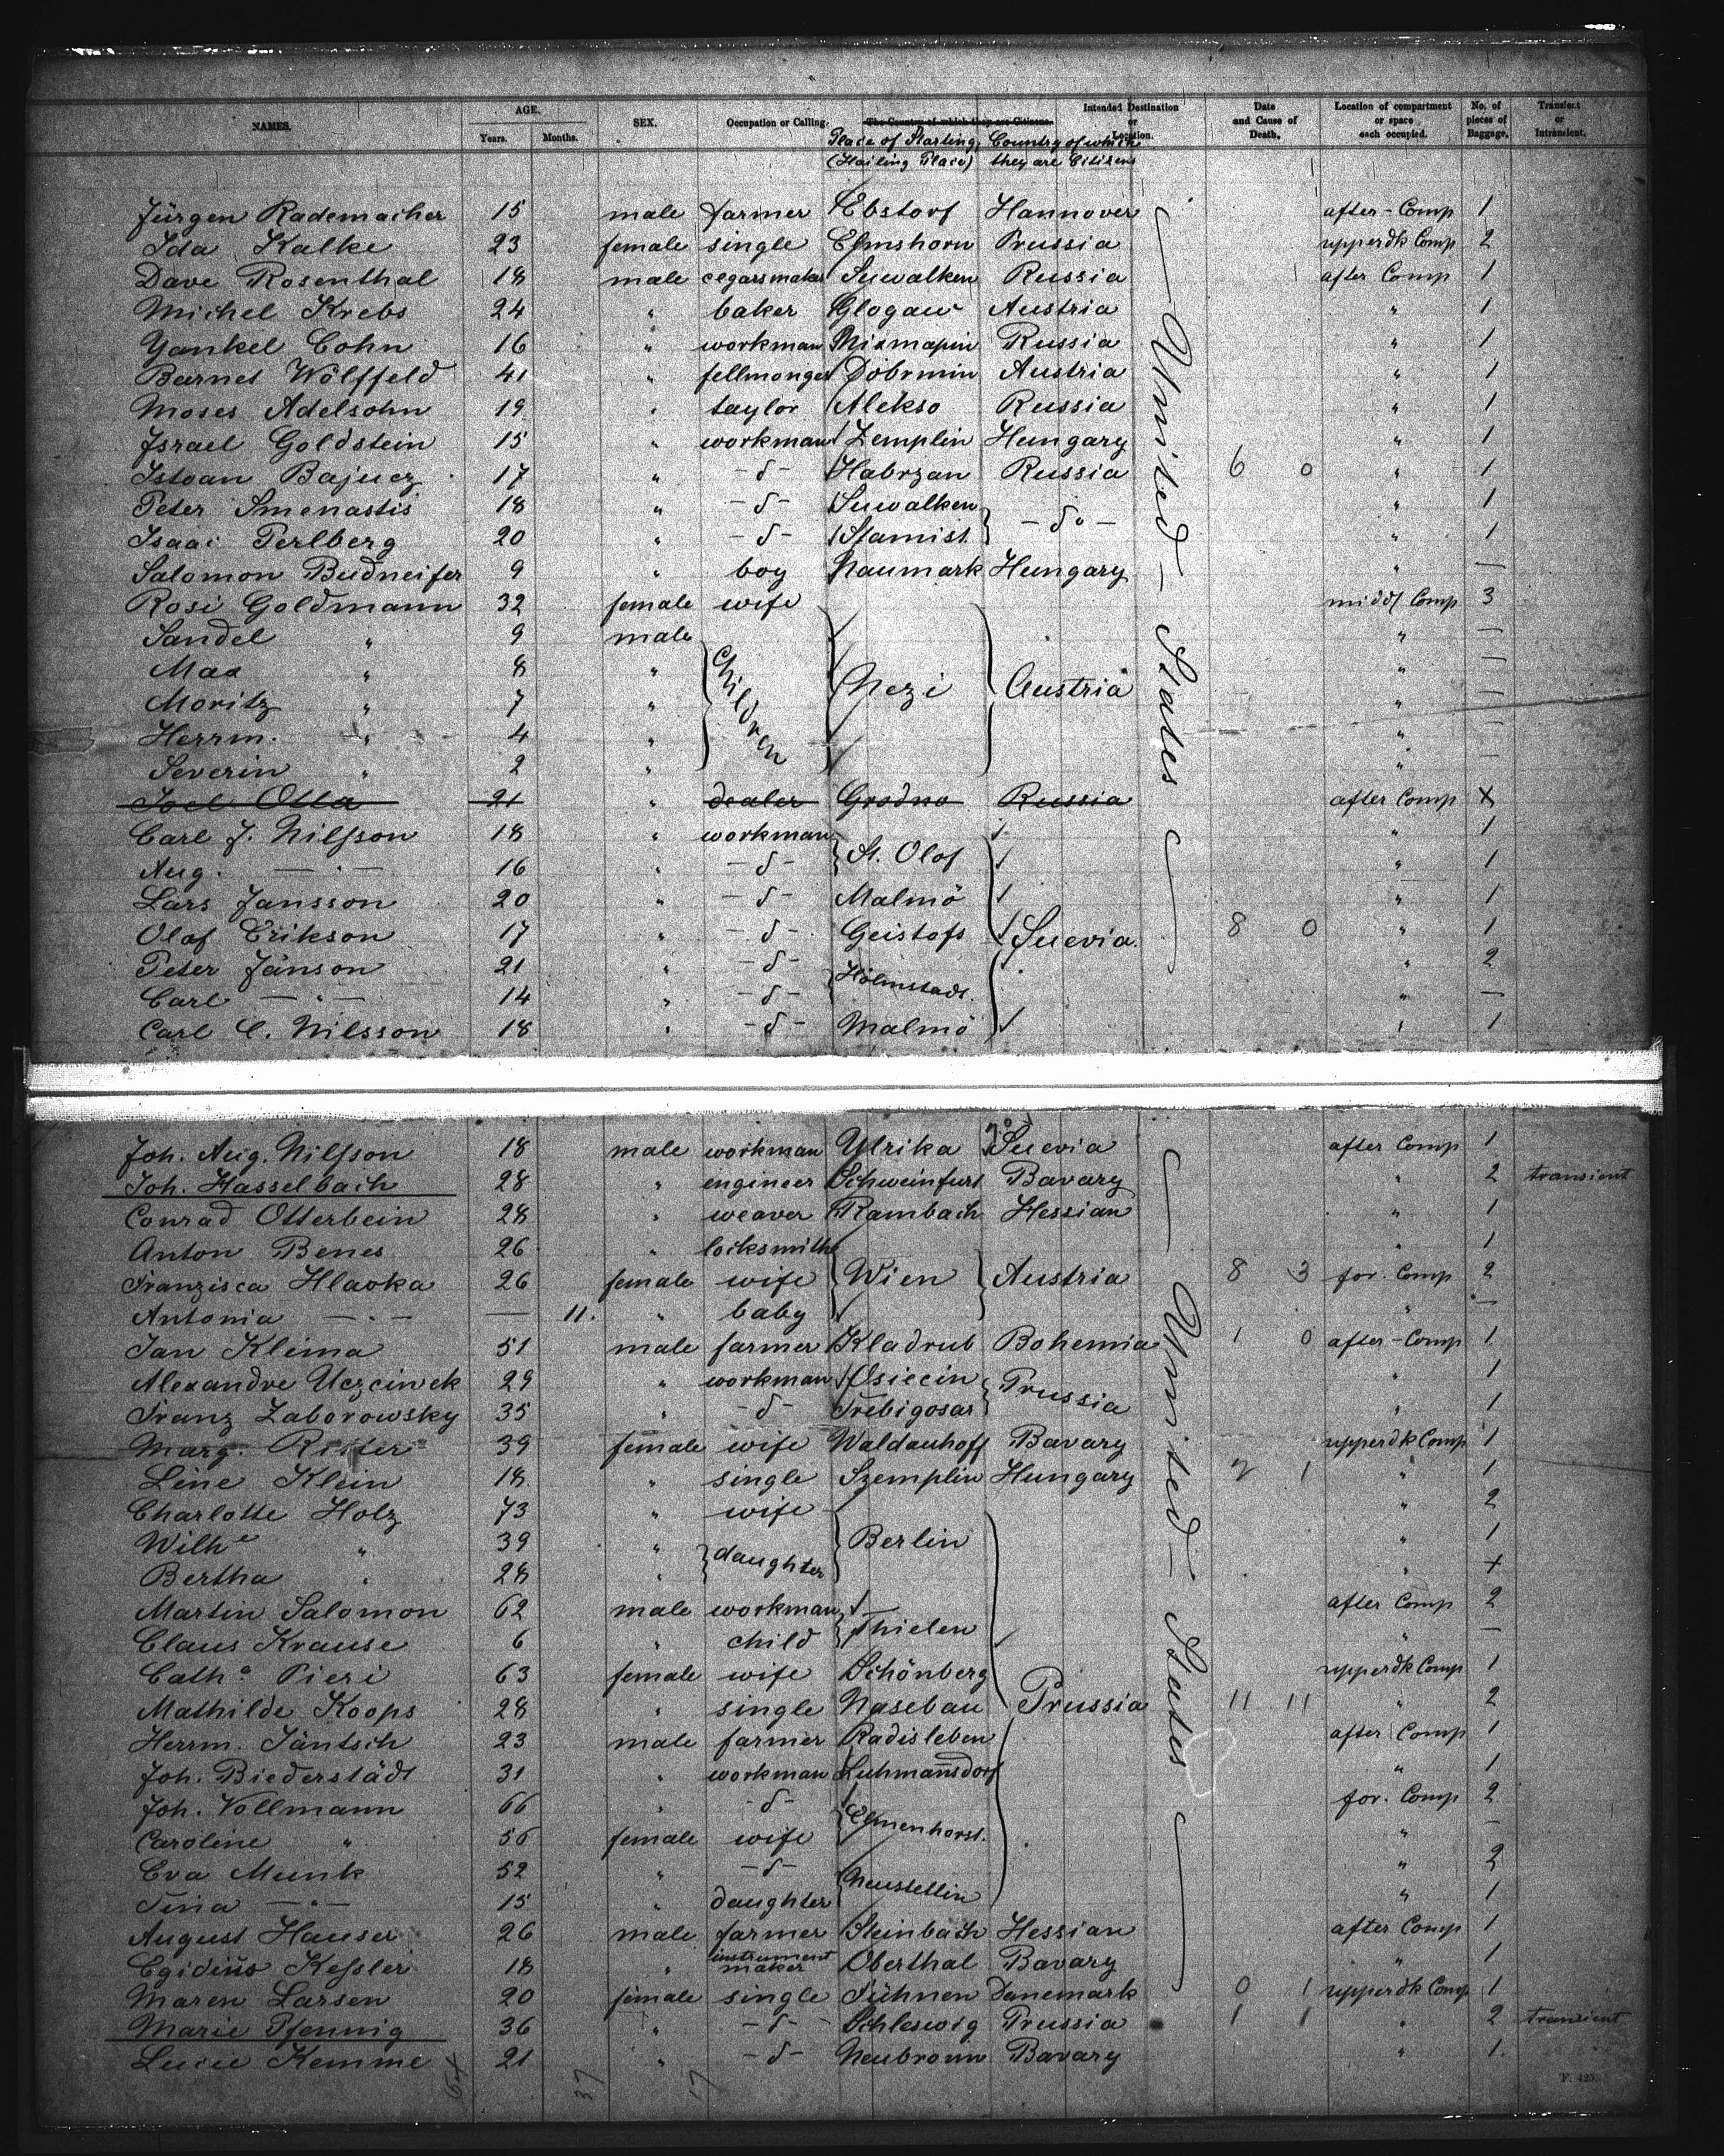 NAMES. AGE. Years. Months. SEX. Occupation or Calling. The Country of which they are Citizens. Intended Destination or Location. Date and Cause of Death. Location of compartment or space each occupied. No. of pieces of Baggage. Transient or Intransient.
Place of Starting, (Hailing Place) Country of which they are Citizens
Jürgen Rademacher 15 male farmer Ebstorf Hannover after-Comp 1
Ida Kalke 23 female single Elmshorn Prussia upperdk Comp 2
Dave Rosenthal 18 male cegarsmaker Suwalken Russia after Comp 1
Michel Krebs 24 " baker Glogau Austria " 1
Yankel Cohn 16 " workman Russia " 1
Barnet Wölffeld 41 " fellmonger Dobrmin Austria " 1
Moses Adelsohn 19 " taylor Alekso Russia " 1
Israel Goldstein 15 " workman Zemplin Hungary " 1
Istvan Bajucz 17 " -d- Habrzan Russia 6 0 " 1
Peter Smenastis 18 " -d- Suwalken " 1
Isaac Perlberg 20 " -d- Stamist -do- " 1
Salomon Budneifer 9 " boy Naumark Hungary " —
Rosi Goldmann 32 female wife middl Comp 3
Sandel " 9 male " —
Max " 8 " Children Nezi Austria " —
Moritz " 7 " " —
Herrm. " 4 " " —
Severin " 2 " " —
Joel Otta 21 " dealer Grodno Russia after Comp X
Carl J. Nilsson 18 " workman " 1
Aug. — " — 16 " -d- St. Olof " 1
Lars Jansson 20 " -d- Malmö " 1
Olof Erikson 17 " -d- Geistofs Suevia. 8 0 " 1
Peter Jänson 21 " -d- " 2
Carl — " — 14 " -d- Hölmstadt. " —
Carl C. Nilsson 18 " -d- Malmö " 1
— United — States —
Joh. Aug. Nilsson 18 male workman Ulrika Suevia after Comp 1
Joh. Hasselbach 28 " engineer Schweinfurt Bavary " 2 transient
Conrad Otterbein 28 " weaver Rambach Hessian " 1
Anton Benes 26 " locksmith " 1
Franzisca Hlavka 26 female wife Wien Austria 8 3 for. Comp 2
Antonia — " — — 11. " baby " —
Jan Klima 51 male farmer Kladrub Bohemia 1 0 after-Comp 1
Alexandre Uczcinek 29 " workman Osiecin " 1
Franz Zaborowsky 35 " -d- Trebigosar Prussia " 1
Marg. Ritter 39 female wife Waldauhoff Bavary upperdk Comp 1
Line Klein 18 " single Szemplin Hungary 2 1 " 1
Charlotte Holz 73 " wife " 2
Wilhe " 39 " Berlin " 1
Bertha " 28 " daughter " X
Martin Salomon 62 male workman after Comp 2
Claus Krause 6 " child Thielen " —
Cathe Pieri 63 female wife Schönberg upperdk Comp 1
Mathilde Koops 28 " single Nasebau Prussia 11 11 " 2
Herrm. Jäntsch 23 male farmer Radisleben after Comp 1
Joh. Biederstädt 31 " workman Luhmansdorf " 1
Joh. Vollmann 66 " -d- for. Comp 2
Caroline " 56 female wife Elmenhorst. " —
Eva Munk 52 " -d- " 2
Tina — " — 15 " daughter Neustettin " 1
August Hauser 26 male farmer Steinbach Hessian after Comp 1
Egidius Kessler 18 " instrument maker Oberthal Bavary " 1
Maren Larsen 20 female single Fühnen Danemark 0 1 upperdk Comp 1
Marie Pfennig 36 " -d- Schleswig Prussia 1 1 " 2 transient
Lucie Kemme 21 " -d- Neubronn Bavary " 1.
— United — States —
64 37 17
F. 425.